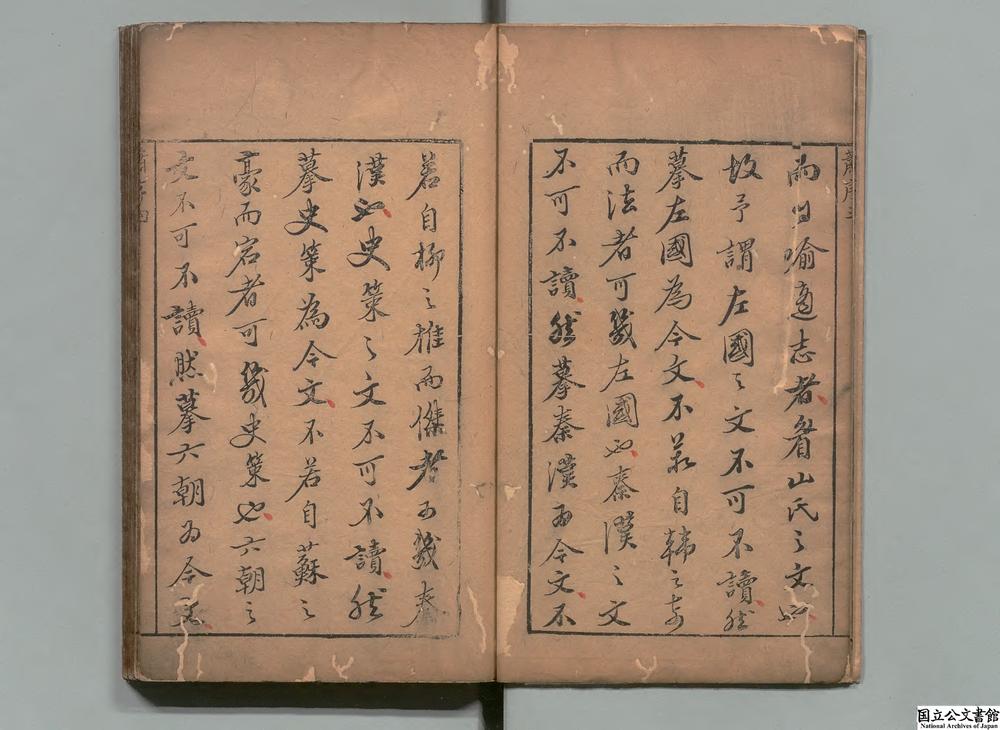 而曲喻適志者眉山氏之文也
故予謂左國之文不可不讀然
摹左國為今文不若自韓之奇
而法者可幾左國也秦漢之文
不可不讀然摹秦漢為今文不
若自柳之雄而傑者可幾秦
漢也史策之文不可不讀然
摹史策為今文不若自蘇之
豪而宕者可幾史策也六朝之
文不可不讀然摹六朝為今文
国立公文書館
National Archives of Japan